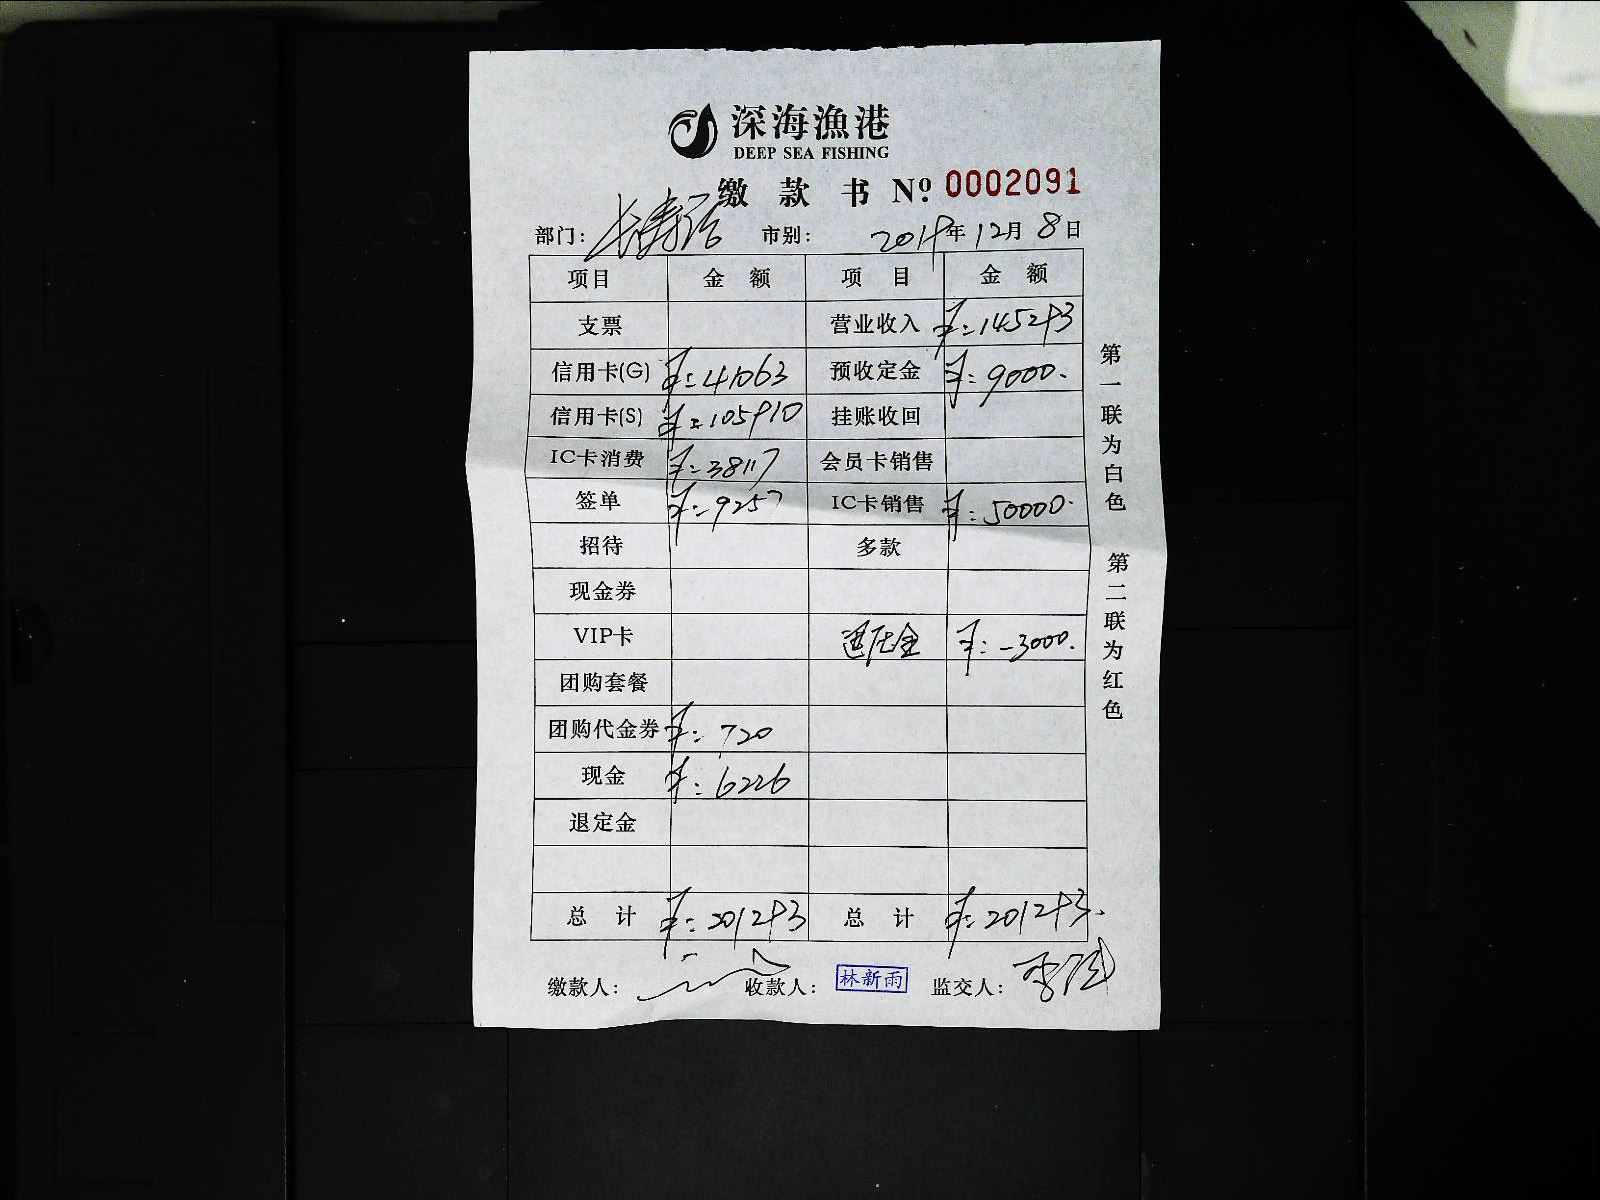 深海漁港
DEEP SEA FISHING
缴 款 书 Nº. 0002091
部门：长寿 市别： 2019年12月8日
项目 金 额 项 目 金 额
支票 营业收入 ¥：145293
信用卡(G) ¥：41063 预收定金 ¥：9000.
信用卡(S) ¥：105910 挂账收回
IC卡消费 ¥：38117 会员卡销售
签单 ¥：9257 IC卡销售 ¥：50000.
招待 多款
现金券
VIP卡 退压金 ¥：-3000.
团购套餐
团购代金券 ¥：720
现金 ¥：6226
退定金
总 计 ¥：201293 总 计 ¥：201293.
缴款人： 收款人：林新雨 监交人：
第一联为白色 第二联为红色